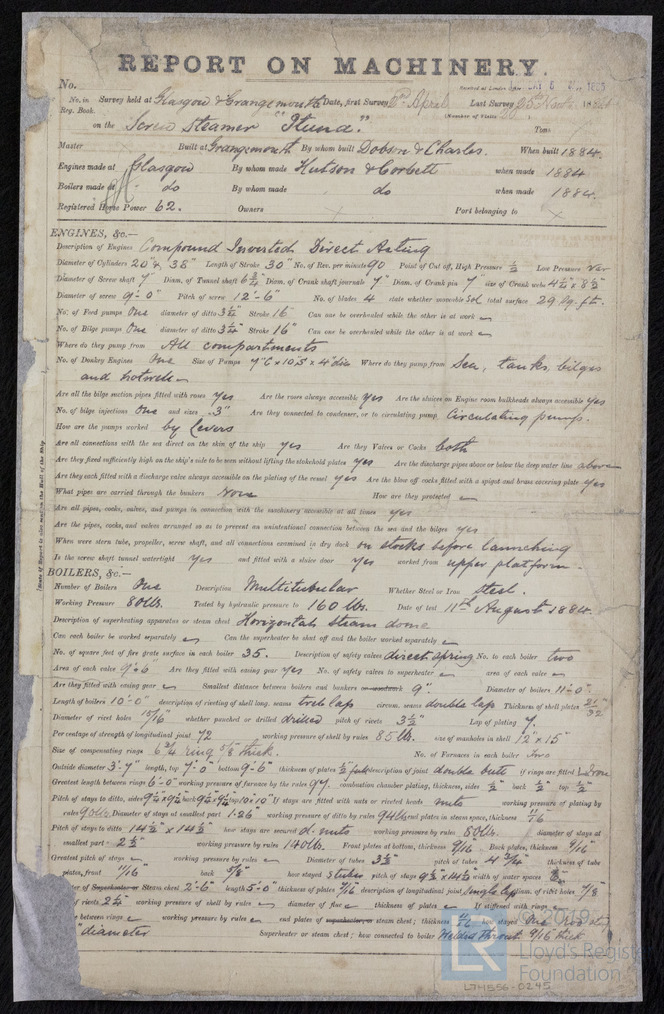 REPORT ON MACHINERY.
No.
No. in Survey held at Glasgow & Grangemouth Date, first Survey April Last Survey 25th
Reg. Book. (Number of Visits
on the Screw Steamer " " Tons
Master Built at Grangemouth By whom built Dobson & Charles. When built 1884.
Engines made at Glasgow By whom made Hutson & Corbett when made 1884
Boilers made at do By whom made do when made 1884.
Registered Horse Power 62. Owners Port belonging to
ENGINES, &c.—
Description of Engines Compound Inverted Direct Acting
Diameter of Cylinders 20" & 38" Length of Stroke 30" No. of Rev. per minute 90 Point of Cut off, High Pressure ½ Low Pressure Var
Diameter of Screw shaft 7" Diam. of Tunnel shaft 6¾" Diam. of Crank shaft journals 7" Diam. of Crank pin 7" size of Crank webs 4½" x 8½"
Diameter of screw 9'-0" Pitch of screw 12'-6" No. of blades 4 state whether moveable sol total surface 29 sq. ft.
No. of Feed pumps One diameter of ditto 3¼" Stroke 16" Can one be overhauled while the other is at work
No. of Bilge pumps One diameter of ditto 3¼" Stroke 16" Can one be overhauled while the other is at work
Where do they pump from All compartments
No. of Donkey Engines One Size of Pumps 4" dia Where do they pump from Sea, tanks, bilges
and hotwell
Are all the bilge suction pipes fitted with roses yes Are the roses always accessible yes Are the sluices on Engine room bulkheads always accessible yes
No. of bilge injections One and sizes 3" Are they connected to condenser, or to circulating pump Circulating pump.
How are the pumps worked by Levers
Are all connections with the sea direct on the skin of the ship yes Are they Valves or Cocks both
Are they fixed sufficiently high on the ship's side to be seen without lifting the stokehold plates yes Are the discharge pipes above or below the deep water line above
Are they each fitted with a discharge valve always accessible on the plating of the vessel yes Are the blow off cocks fitted with a spigot and brass covering plate yes
What pipes are carried through the bunkers None How are they protected
Are all pipes, cocks, valves, and pumps in connection with the machinery accessible at all times yes
Are the pipes, cocks, and valves arranged so as to prevent an unintentional connection between the sea and the bilges yes
When were stern tube, propeller, screw shaft, and all connections examined in dry dock on stocks before launching
Is the screw shaft tunnel watertight yes and fitted with a sluice door yes worked from upper platform.
BOILERS, &c.—
Number of Boilers One Description Multitubular Whether Steel or Iron steel.
Working Pressure 80 lbs. Tested by hydraulic pressure to 160 lbs. Date of test 11th August 1884.
Description of superheating apparatus or steam chest Horizontal steam dome
Can each boiler be worked separately Can the superheater be shut off and the boiler worked separately
No. of square feet of fire grate surface in each boiler 35. Description of safety valves direct spring No. to each boiler two
Area of each valve Are they fitted with easing gear yes No. of safety valves to superheater area of each valve
Are they fitted with easing gear Smallest distance between boilers and bunkers or woodwork 9". Diameter of boilers 11'-0"
Length of boilers 10'-0" description of riveting of shell long. seams circum. seams double lap Thickness of shell plates 21/32"
Diameter of rivet holes 15/16" whether punched or drilled drilled pitch of rivets 3½" Lap of plating 7.
Per centage of strength of longitudinal joint 72 working pressure of shell by rules 85 lb. size of manholes in shell 12" x 15"
Size of compensating rings 6¾" ring 5/8" thick. No. of Furnaces in each boiler Two
Outside diameter 3'-7" length, top 7'-0" bottom 9'-6" thickness of plates ½" full description of joint double butt if rings are fitted
Greatest length between rings 6'-0" working pressure of furnace by the rules 97 combustion chamber plating, thickness, sides ½" back ½" top ½"
Pitch of stays to ditto, sides 9½ x 9½ back 9½ x 9½ top 10 x 10" If stays are fitted with nuts or riveted heads nuts working pressure of plating by
rules 90 lb. Diameter of stays at smallest part 1·26" working pressure of ditto by rules 94 lb. end plates in steam space, thickness 11/16
Pitch of stays to ditto 14½" x 14½" how stays are secured d. nuts working pressure by rules 80 lb. diameter of stays at
smallest part 2½" working pressure by rules 140 lb. Front plates at bottom, thickness 9/16" Back plates, thickness 9/16"
Greatest pitch of stays working pressure by rules Diameter of tubes 3½" pitch of tubes 4¾" thickness of tube
plates, front 11/16" back 5/8" how stayed s tubes pitch of stays 9½ x 14½ width of water spaces
Superheater or Steam chest 2'-6" length 5-0" thickness of plates 7/16" description of longitudinal joint single lap diam. of rivet holes 7/8"
of rivets 2¼" working pressure of shell by rules diameter of flue thickness of plates If stiffened with rings
between rings working pressure by rules end plates of superheater, or steam chest; thickness how stayed
"diameter Superheater or steam chest; how connected to boiler Welded Throat 9/16 thick
(State of Report is also sent on the Hull of the Ship.
© 2019
LR
Lloyd's Register
Foundation
LTMB56-0245